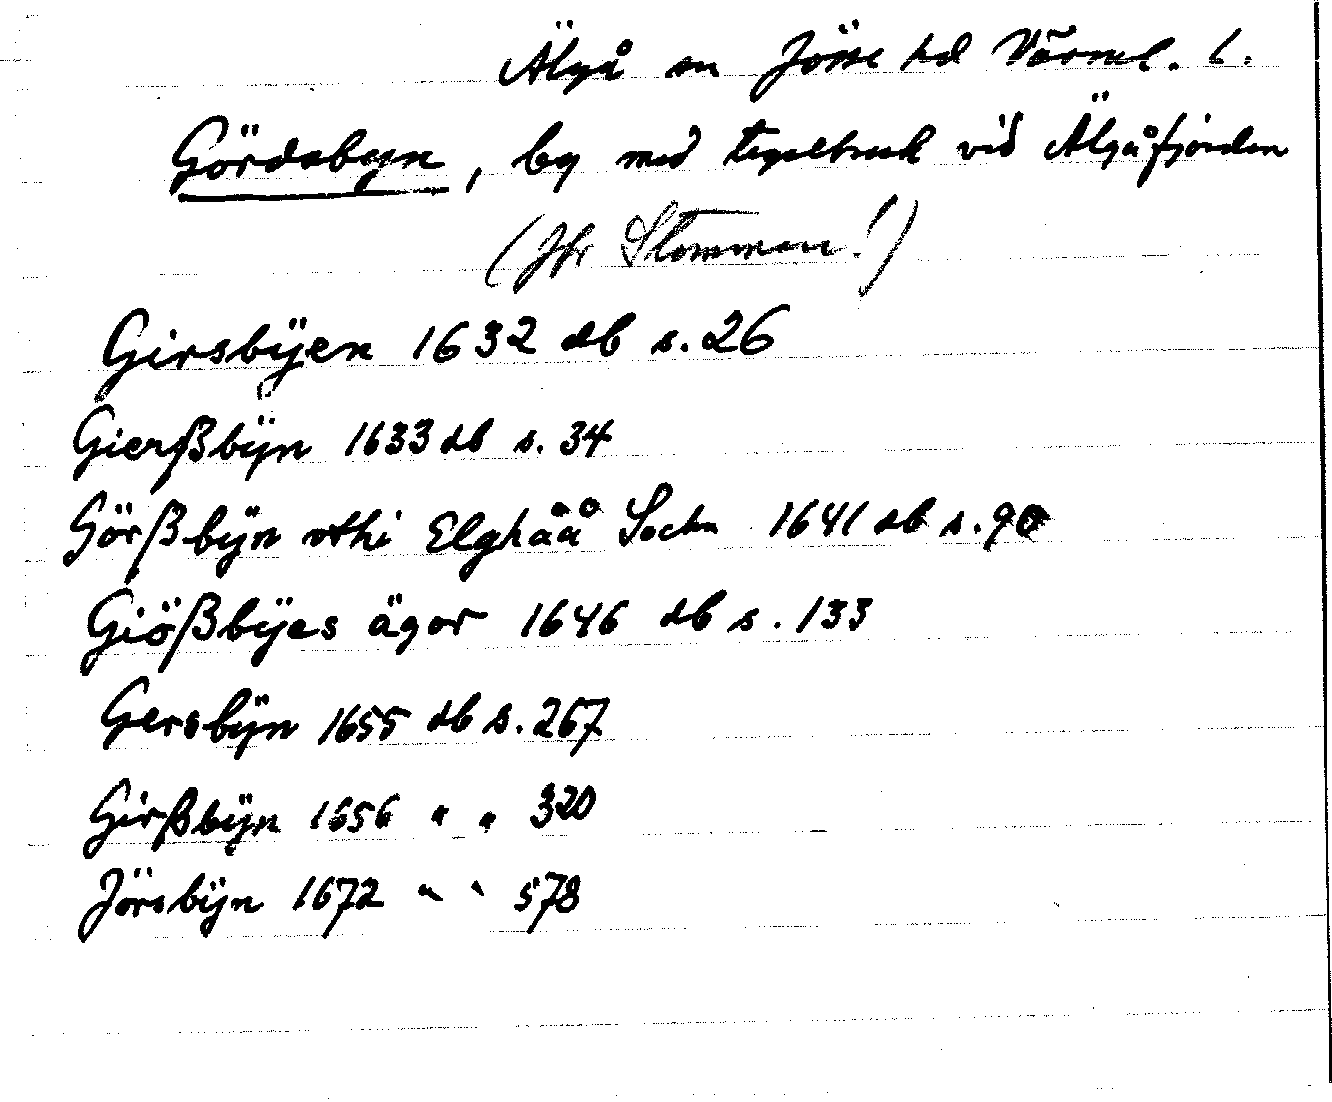 Älgå sn Jösse hd Värml. l.
Gördsbyn, by med tegelbruk vid Älgåfjorden
(Jfr Stommen!)
Girsbÿen 1632 db s. 26
Gierßbÿn 1633 db s. 34
Görßbÿn vthi Elghåå Sochn 1641 db s. 90
Giößbÿes ägor 1646 db s. 133
Gersbÿn 1655 db s. 267
Girßbÿn 1656 " " 320
Jörsbÿn 1672 " " 578